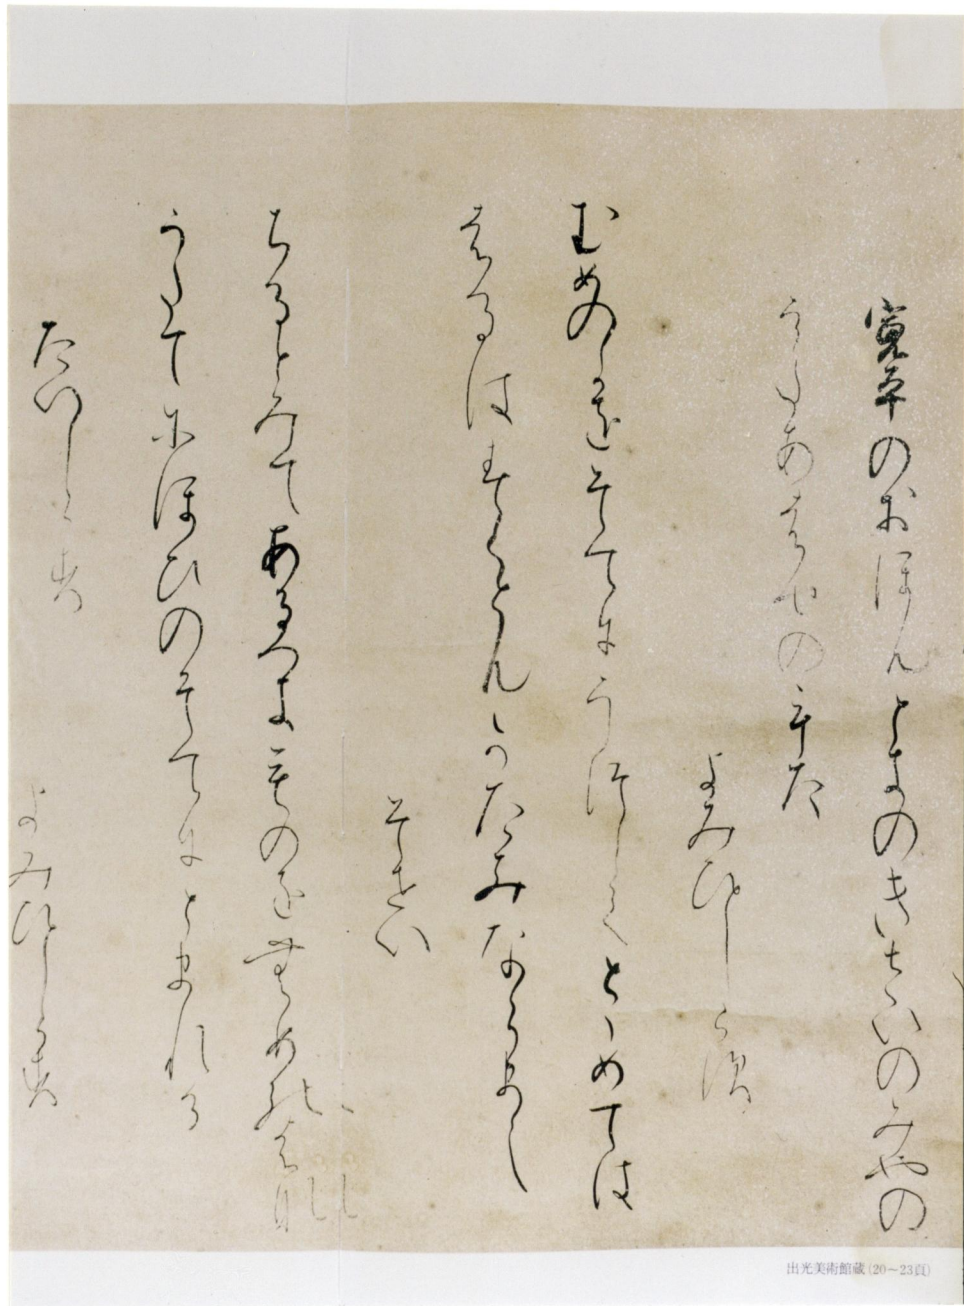 寛平のおほんときのきさいのみやの
うたあはせのうた
よみひとしらす
むめのかをそてにうつしてとゝめては
はるはすくともかたみならまし
そせい
ちるとみてあるへきものをむめのはな
うたてにほひのそてにとまれる
たいしらす
よみひとしらす
出光美術館蔵(20〜23頁)